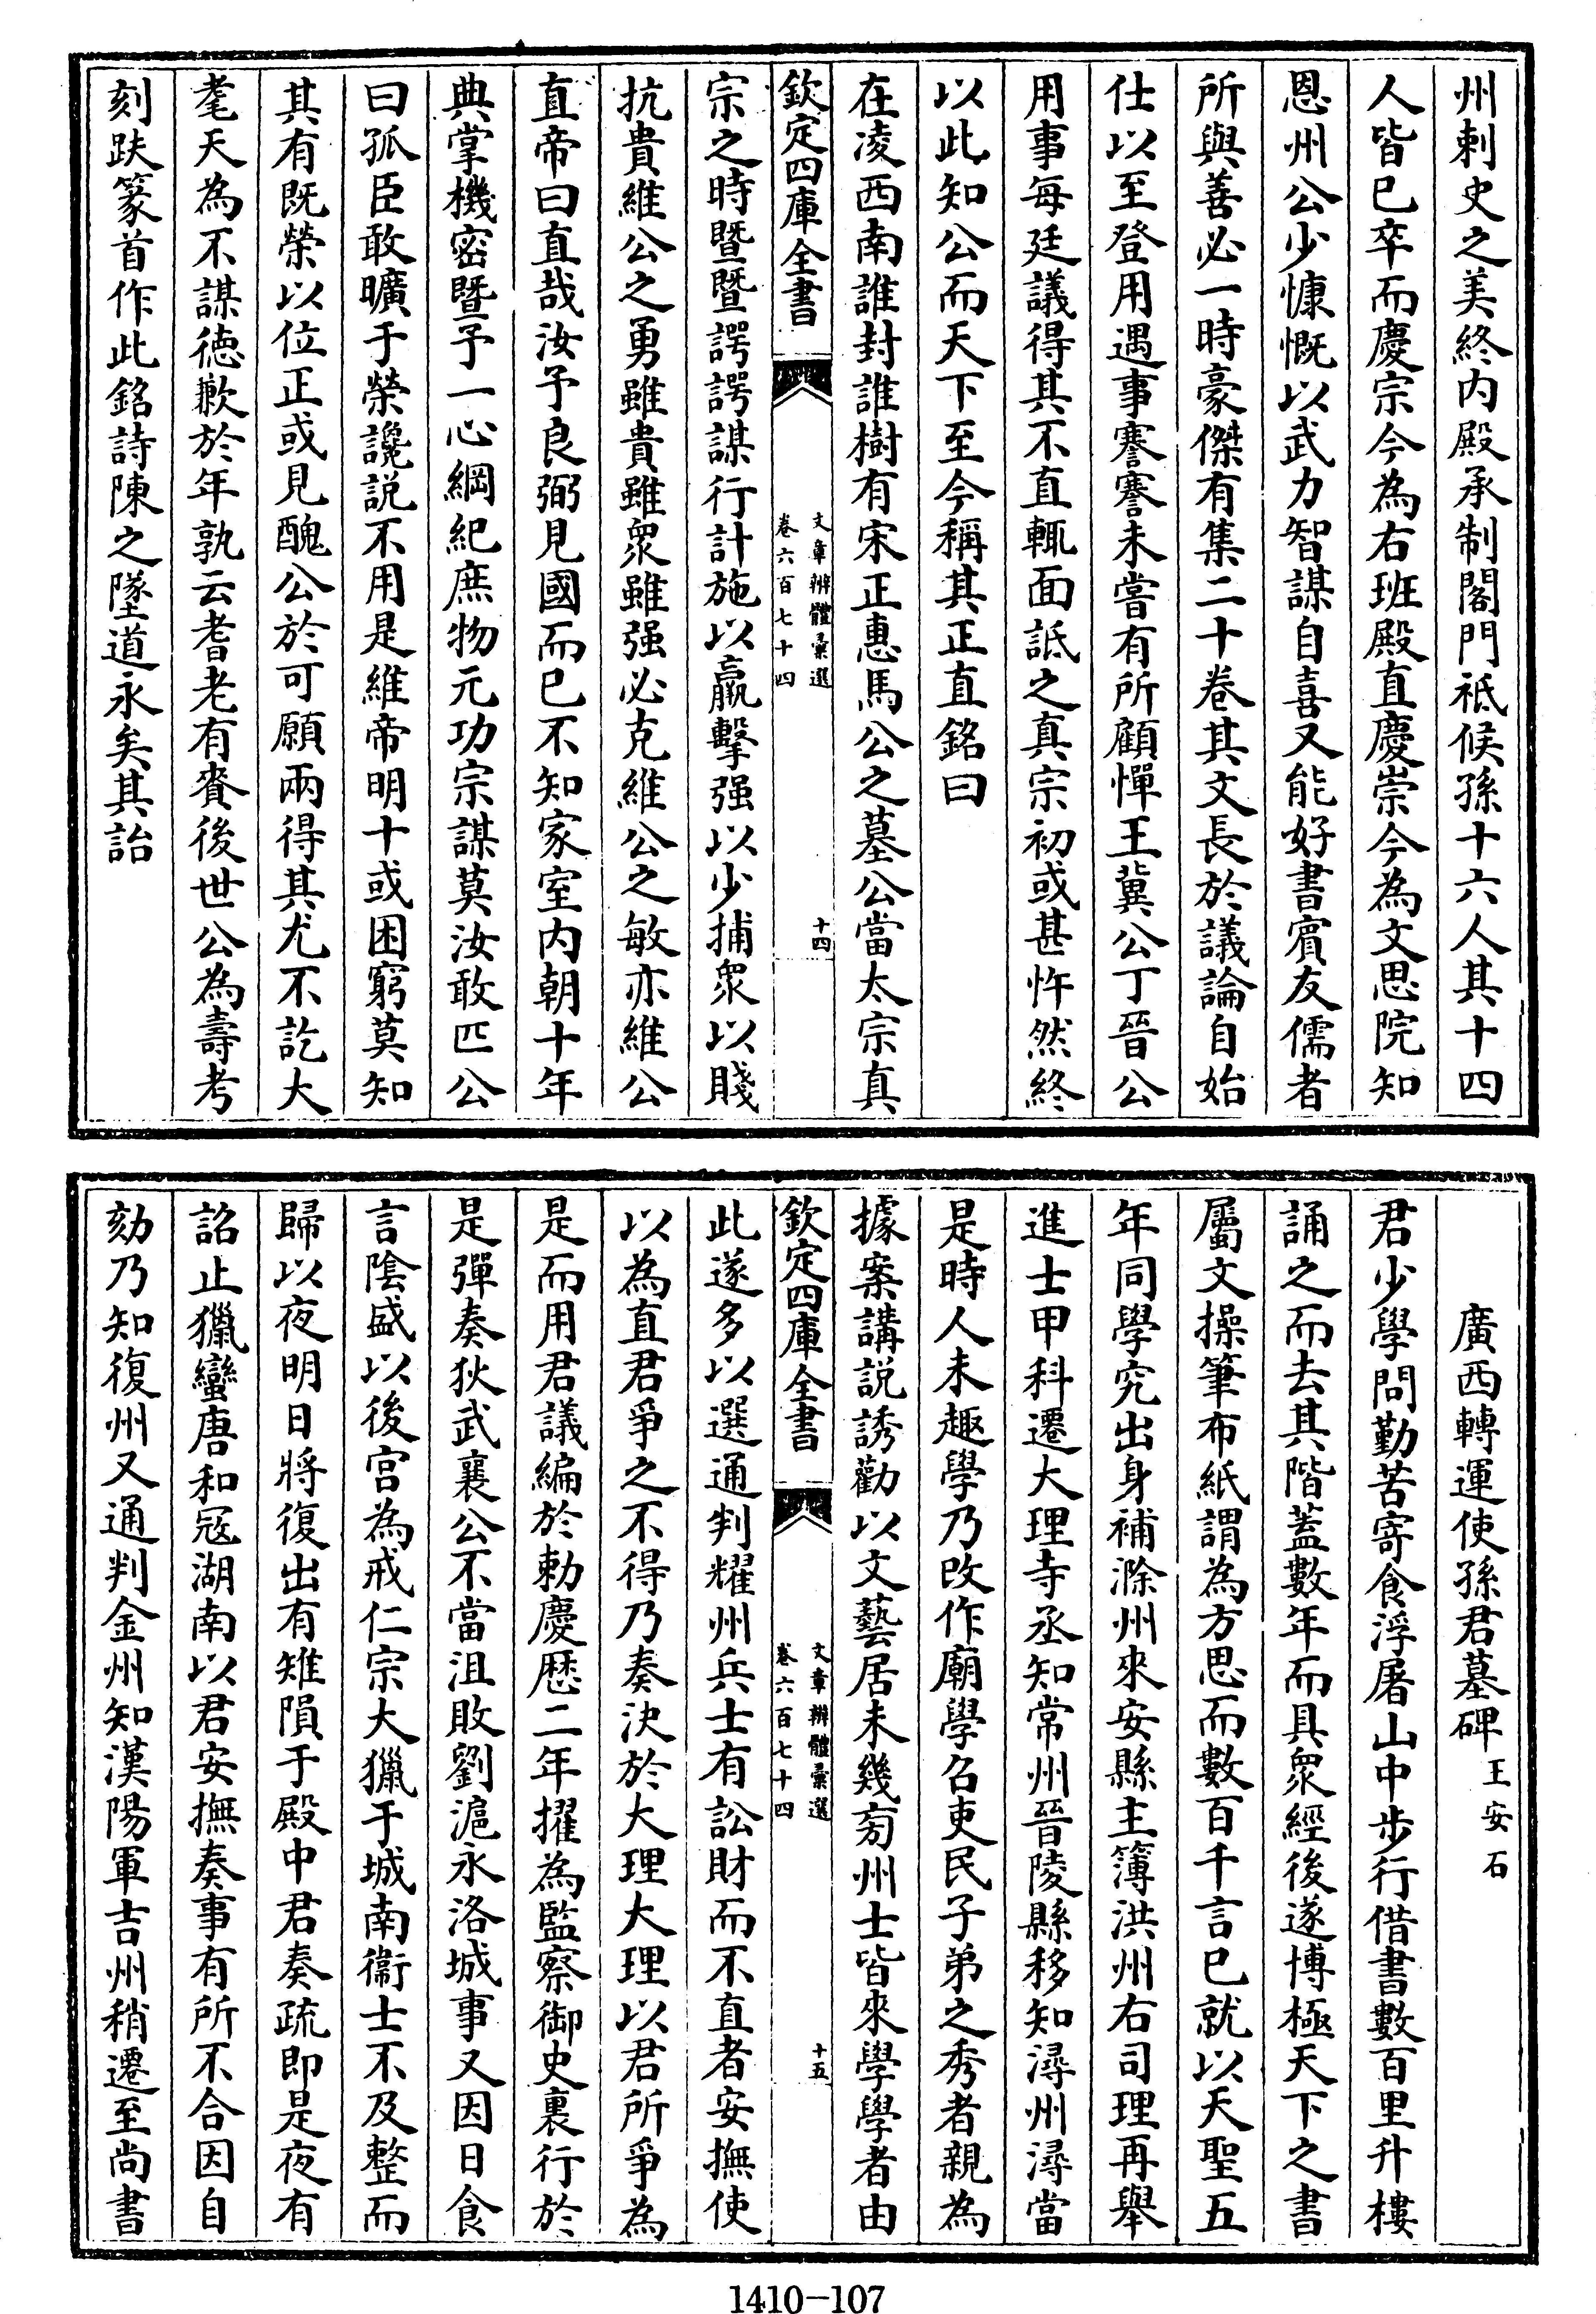 州刺史之美終内殿承制閤門祗候孫十六人其十四
人皆已卒而慶宗今為右班殿直慶崇今為文思院知
恩州公少慷慨以武力智謀自喜又能好書賓友儒者
所與善必一時豪傑有集二十卷其文長於議論自始
仕以至登用遇事謇謇未嘗有所顧憚王冀公丁晉公
用事每廷議得其不直輒面詆之真宗初或甚忤然終
以此知公而天下至今稱其正直銘曰
在凌西南誰封誰樹有宋正惠馬公之墓公當太宗真
欽定四庫全書
文章辨體彙選
卷六百七十四
十四
宗之時暨暨諤諤謀行計施以羸擊强以少捕衆以賤
抗貴維公之勇雖貴雖衆雖强必克維公之敏亦維公
直帝曰直哉汝予良弼見國而已不知家室内朝十年
典掌機密暨予一心綱紀庶物元功宗謀莫汝敢匹公
曰孤臣敢曠于榮讒説不用是維帝明十或困窮莫知
其有既榮以位正或見醜公於可願兩得其尤不訖大
耄天為不謀徳歉於年孰云耆老有賚後世公為壽考
刻趺篆首作此銘詩陳之墜道永矣其詒
廣西轉運使孫君墓碑 王安石
君少學問勤苦寄食浮屠山中步行借書數百里升樓
誦之而去其階蓋數年而具衆經後遂博極天下之書
屬文操筆布紙謂為方思而數百千言已就以天聖五
年同學究出身補滁州來安縣主簿洪州右司理再舉
進士甲科遷大理寺丞知常州晉陵縣移知潯州潯當
是時人未趣學乃改作廟學召吏民子弟之秀者親為
據案講説誘勸以文藝居未幾旁州士皆來學學者由
欽定四庫全書
文章辨體彙選
卷六百七十四
十五
此遂多以選通判耀州兵士有訟財而不直者安撫使
以為直君爭之不得乃奏決於大理大理以君所爭為
是而用君議編於勅慶歴二年擢為監察御史裏行於
是彈奏狄武襄公不當沮敗劉滬永洛城事又因日食
言陰盛以後宫為戒仁宗大獵于城南衞士不及整而
歸以夜明日將復出有雉隕于殿中君奏疏即是夜有
詔止獵蠻唐和冦湖南以君安撫奏事有所不合因自
劾乃知復州又通判金州知漢陽軍吉州稍遷至尚書
1410—107